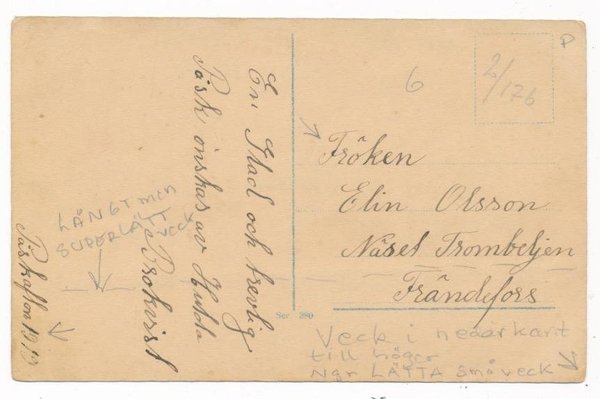 En Glad och trevlig
Påsk önskas av Hulda
Brokvist
Påskafton 1913
LÅNGT men
SUPERLÄTT veck
6
2/176
P
Fröken
Elin Olsson
Näset Trombeljen
Frändefors
Ser 280
Veck i nederkant
till höger
Ngr LÄTTA småveck